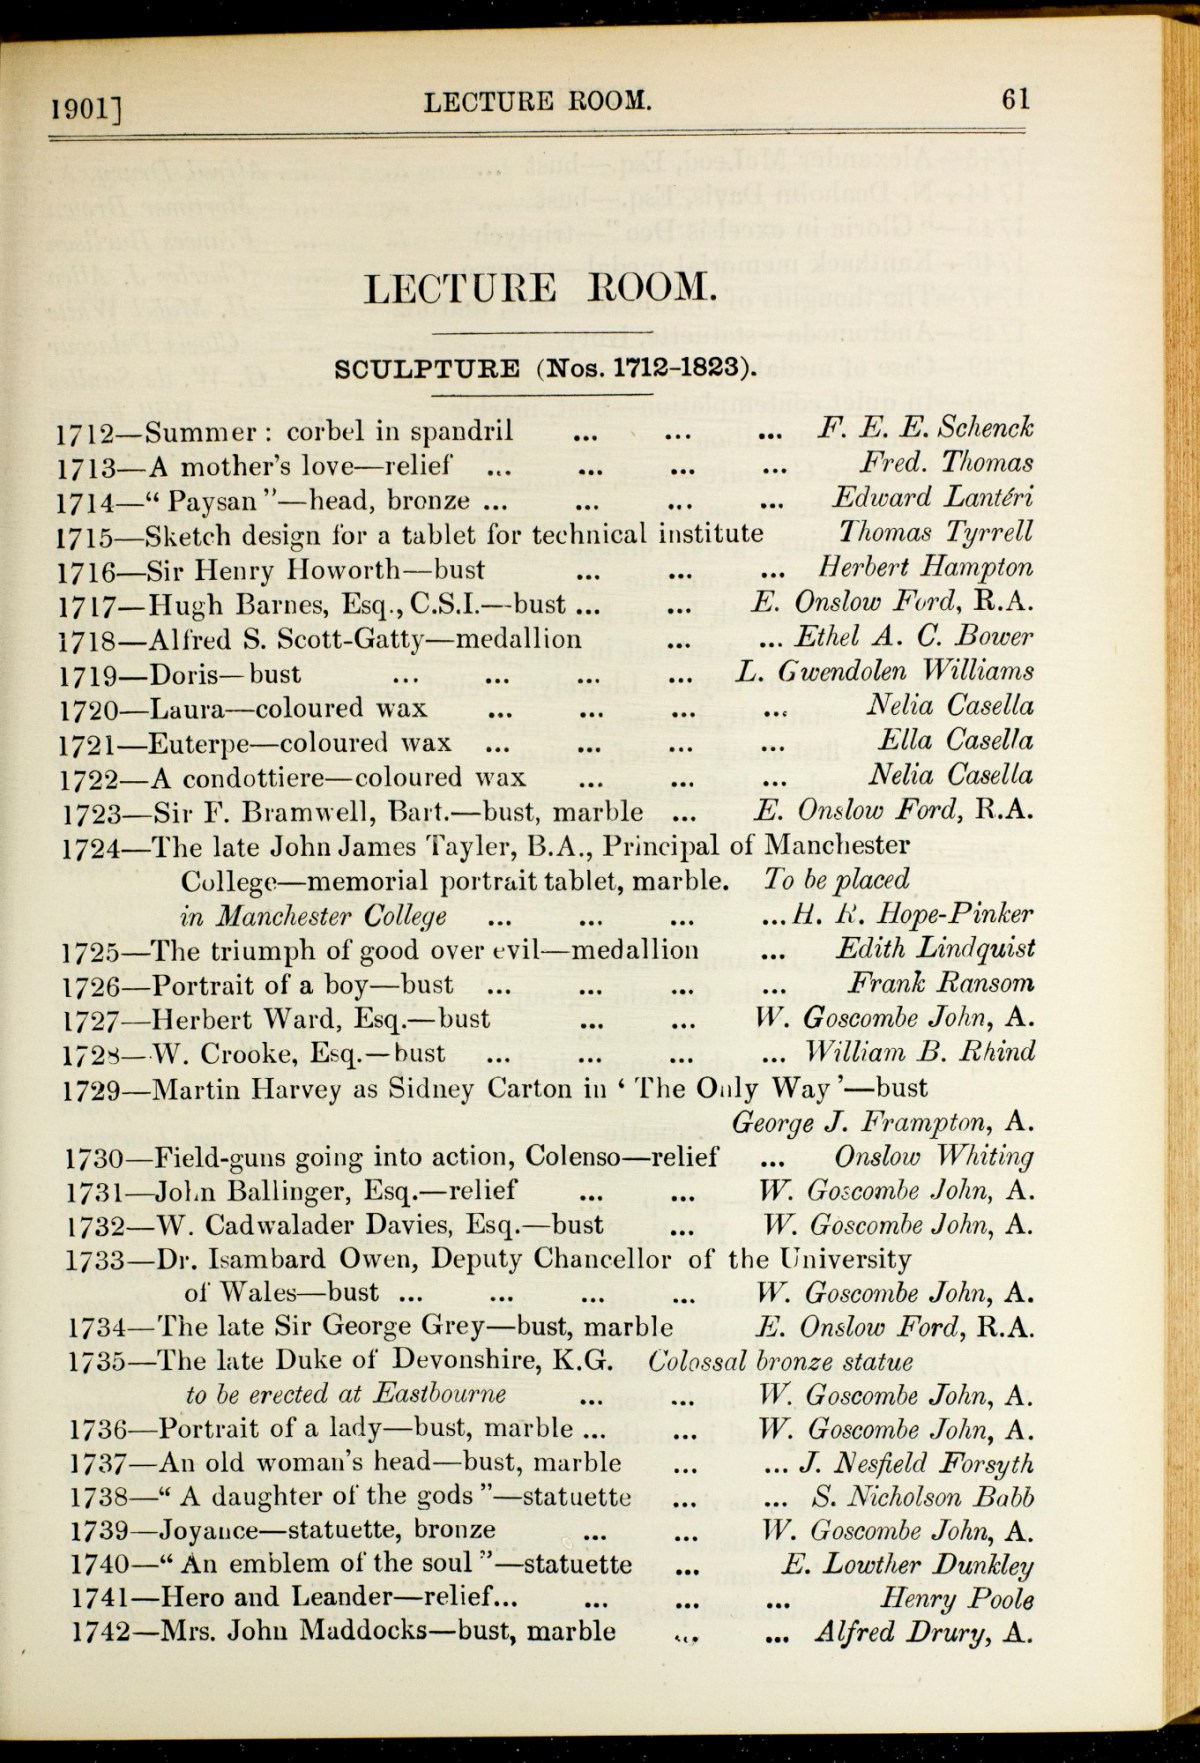 1901] LECTURE ROOM. 61
LECTURE ROOM.
SCULPTURE (Nos. 1712-1823).
1712—Summer: corbel in spandril ... ... ... F. E. E. Schenck
1713—A mother's love—relief ... ... ... ... Fred. Thomas
1714—“ Paysan ”—head, bronze ... ... ... ... Edward Lantéri
1715—Sketch design for a tablet for technical institute Thomas Tyrrell
1716—Sir Henry Howorth—bust ... ... ... Herbert Hampton
1717—Hugh Barnes, Esq., C.S.I.—bust ... ... E. Onslow Ford, R.A.
1718—Alfred S. Scott-Gatty—medallion ... ... Ethel A. C. Bower
1719—Doris—bust ... ... ... ... L. Gwendolen Williams
1720—Laura—coloured wax ... ... ... ... Nelia Casella
1721—Euterpe—coloured wax ... ... ... ... Ella Casella
1722—A condottiere—coloured wax ... ... ... Nelia Casella
1723—Sir F. Bramwell, Bart.—bust, marble ... E. Onslow Ford, R.A.
1724—The late John James Tayler, B.A., Principal of Manchester
College—memorial portrait tablet, marble. To be placed
in Manchester College ... ... ... ... H. R. Hope-Pinker
1725—The triumph of good over evil—medallion ... Edith Lindquist
1726—Portrait of a boy—bust ... ... ... ... Frank Ransom
1727—Herbert Ward, Esq.—bust ... ... W. Goscombe John, A.
1728—W. Crooke, Esq.—bust ... ... ... ... William B. Rhind
1729—Martin Harvey as Sidney Carton in ‘ The Only Way ’—bust
George J. Frampton, A.
1730—Field-guns going into action, Colenso—relief ... Onslow Whiting
1731—John Ballinger, Esq.—relief ... ... W. Goscombe John, A.
1732—W. Cadwalader Davies, Esq.—bust ... W. Goscombe John, A.
1733—Dr. Isambard Owen, Deputy Chancellor of the University
of Wales—bust ... ... ... ... W. Goscombe John, A.
1734—The late Sir George Grey—bust, marble E. Onslow Ford, R.A.
1735—The late Duke of Devonshire, K.G. Colossal bronze statue
to be erected at Eastbourne ... ... W. Goscombe John, A.
1736—Portrait of a lady—bust, marble ... ... W. Goscombe John, A.
1737—An old woman's head—bust, marble ... ... J. Nesfield Forsyth
1738—“ A daughter of the gods ”—statuette ... ... S. Nicholson Babb
1739—Joyance—statuette, bronze ... ... W. Goscombe John, A.
1740—“ An emblem of the soul ”—statuette ... E. Lowther Dunkley
1741—Hero and Leander—relief... ... ... ... Henry Poole
1742—Mrs. John Maddocks—bust, marble ... ... Alfred Drury, A.